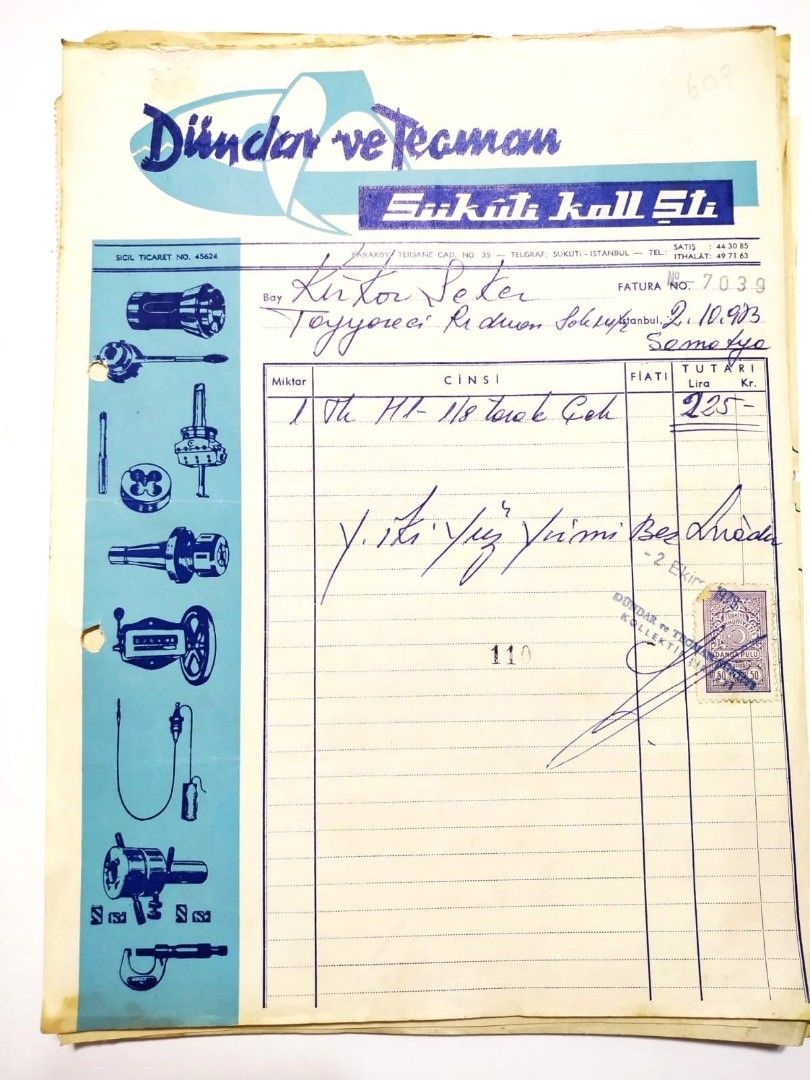 607
Dündar ve Teoman
Sükûti Koll Şti
SİCİL TİCARET NO. 45624
KARAKÖY TERSANE CAD. NO 35 — TELGRAF: SUKUTİ - İSTANBUL — TEL.: SATIŞ : 44 30 85
İTHALÂT: 49 71 63
Bay Kirkor Şeker
FATURA NO. Nº 7039
Tayyareci Rıdvan Sok İstanbul, 2.10.973
Samatya
Miktar CİNSİ FİATI TUTARI
Lira Kr.
1 Tk M1 - 1/8 225-
Y. iki yüz yirmi Beş Liradır
- 2 Ekim 1973
DÜNDAR ve TEOMAN
KOLLEKTİF ŞİRKETİ
110
DAMGA PULU
50 50